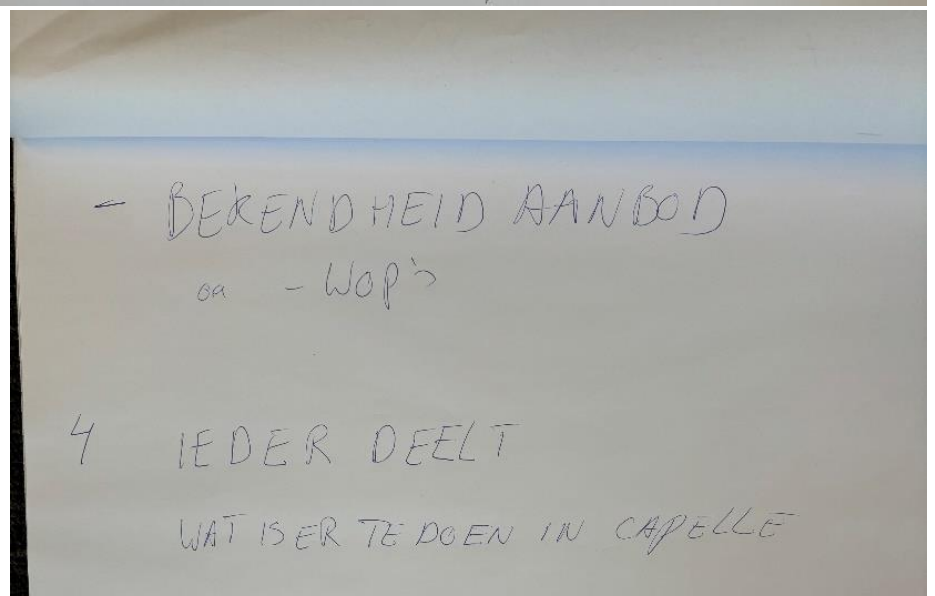 - BEKENDHEID AANBOD
oa - WOP's
4 IEDER DEELT
WAT IS ER TE DOEN IN CAPELLE